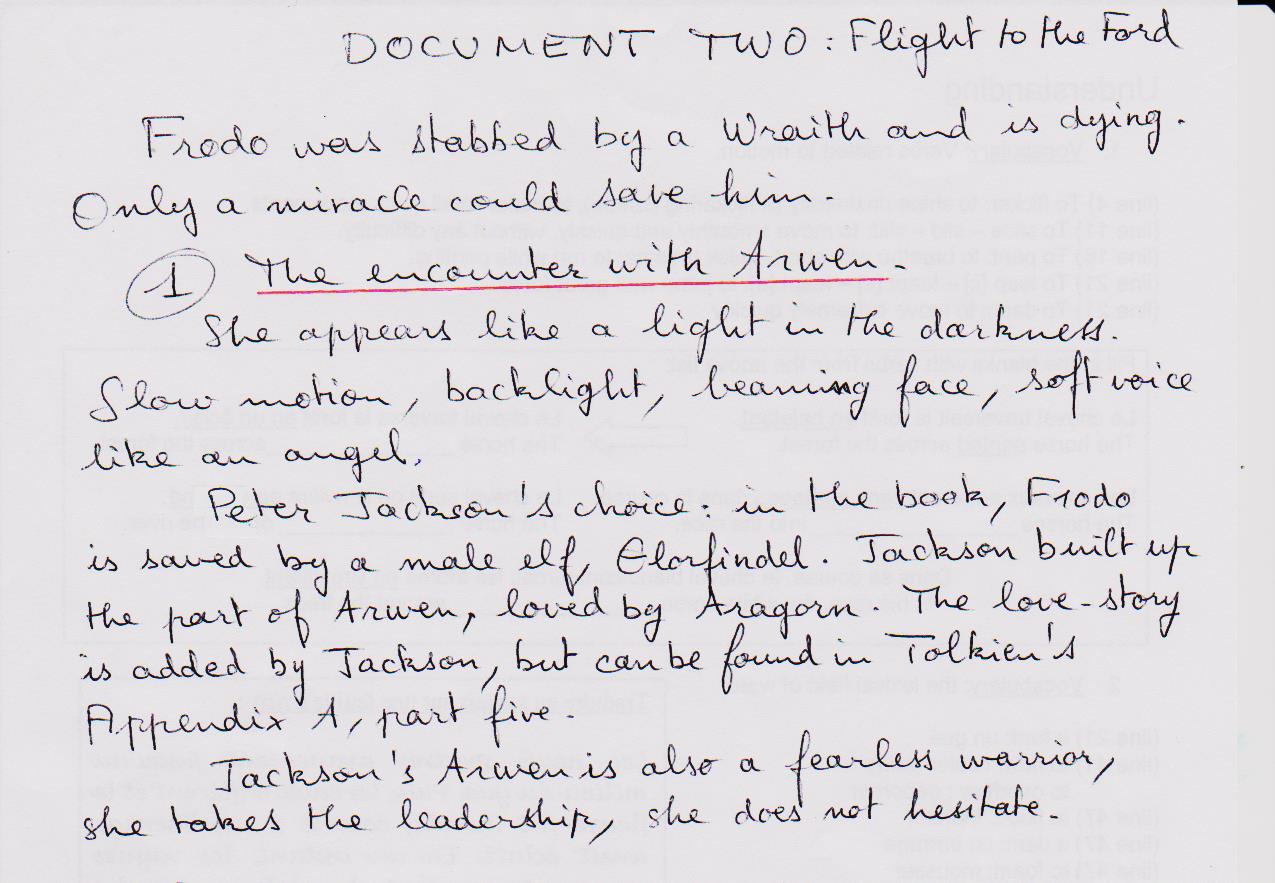 DOCUMENT TWO : Flight to the Ford
Frodo was stabbed by a Wraith and is dying.
Only a miracle could save him.
1 The encounter with Arwen.
She appears like a light in the darkness.
Slow motion, backlight, beaming face, soft voice
like an angel.
Peter Jackson's choice: in the book, Frodo
is saved by a male elf, Glorfindel. Jackson built up
the part of Arwen, loved by Aragorn. The love-story
is added by Jackson, but can be found in Tolkien's
Appendix A, part five.
Jackson's Arwen is also a fearless warrior,
she takes the leadership, she does not hesitate.